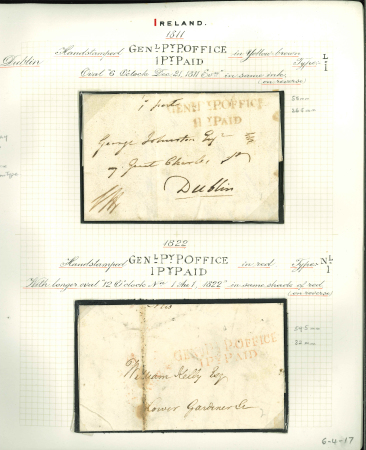 IRELAND.
1811
Dublin Handstamped GENL PY P. OFFICE 1 PY PAID in Yellow-brown Type L/1
Oval "6 o'clock Dec. 21. 1811 Evng" in same ink.
(on reverse)
GENL PY P. OFFICE
1 PY PAID
George Johnston Esqr
7 Great Charles St
Dublin
1822
Handstamped GENL PY P. OFFICE 1 PY PAID in red Type N/1
With longer oval "12 o'clock Nn 1 Au 1. 1822" in same shade of red.
(on reverse)
GENL PY P. OFFICE
1 PY PAID
William Kelly Esq
Lower Gardiner St
6-4-17